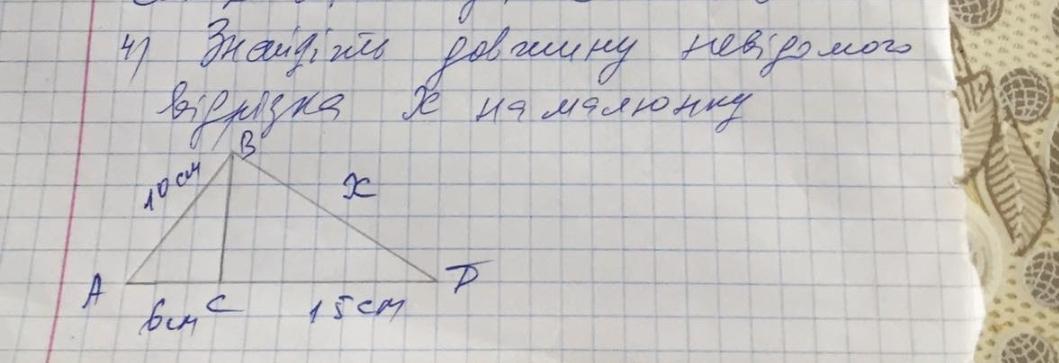 4) Знайдіть довжину невідомого
відрізка х на малюнку
B
10 см
х
A
6 см
C
15 см
D